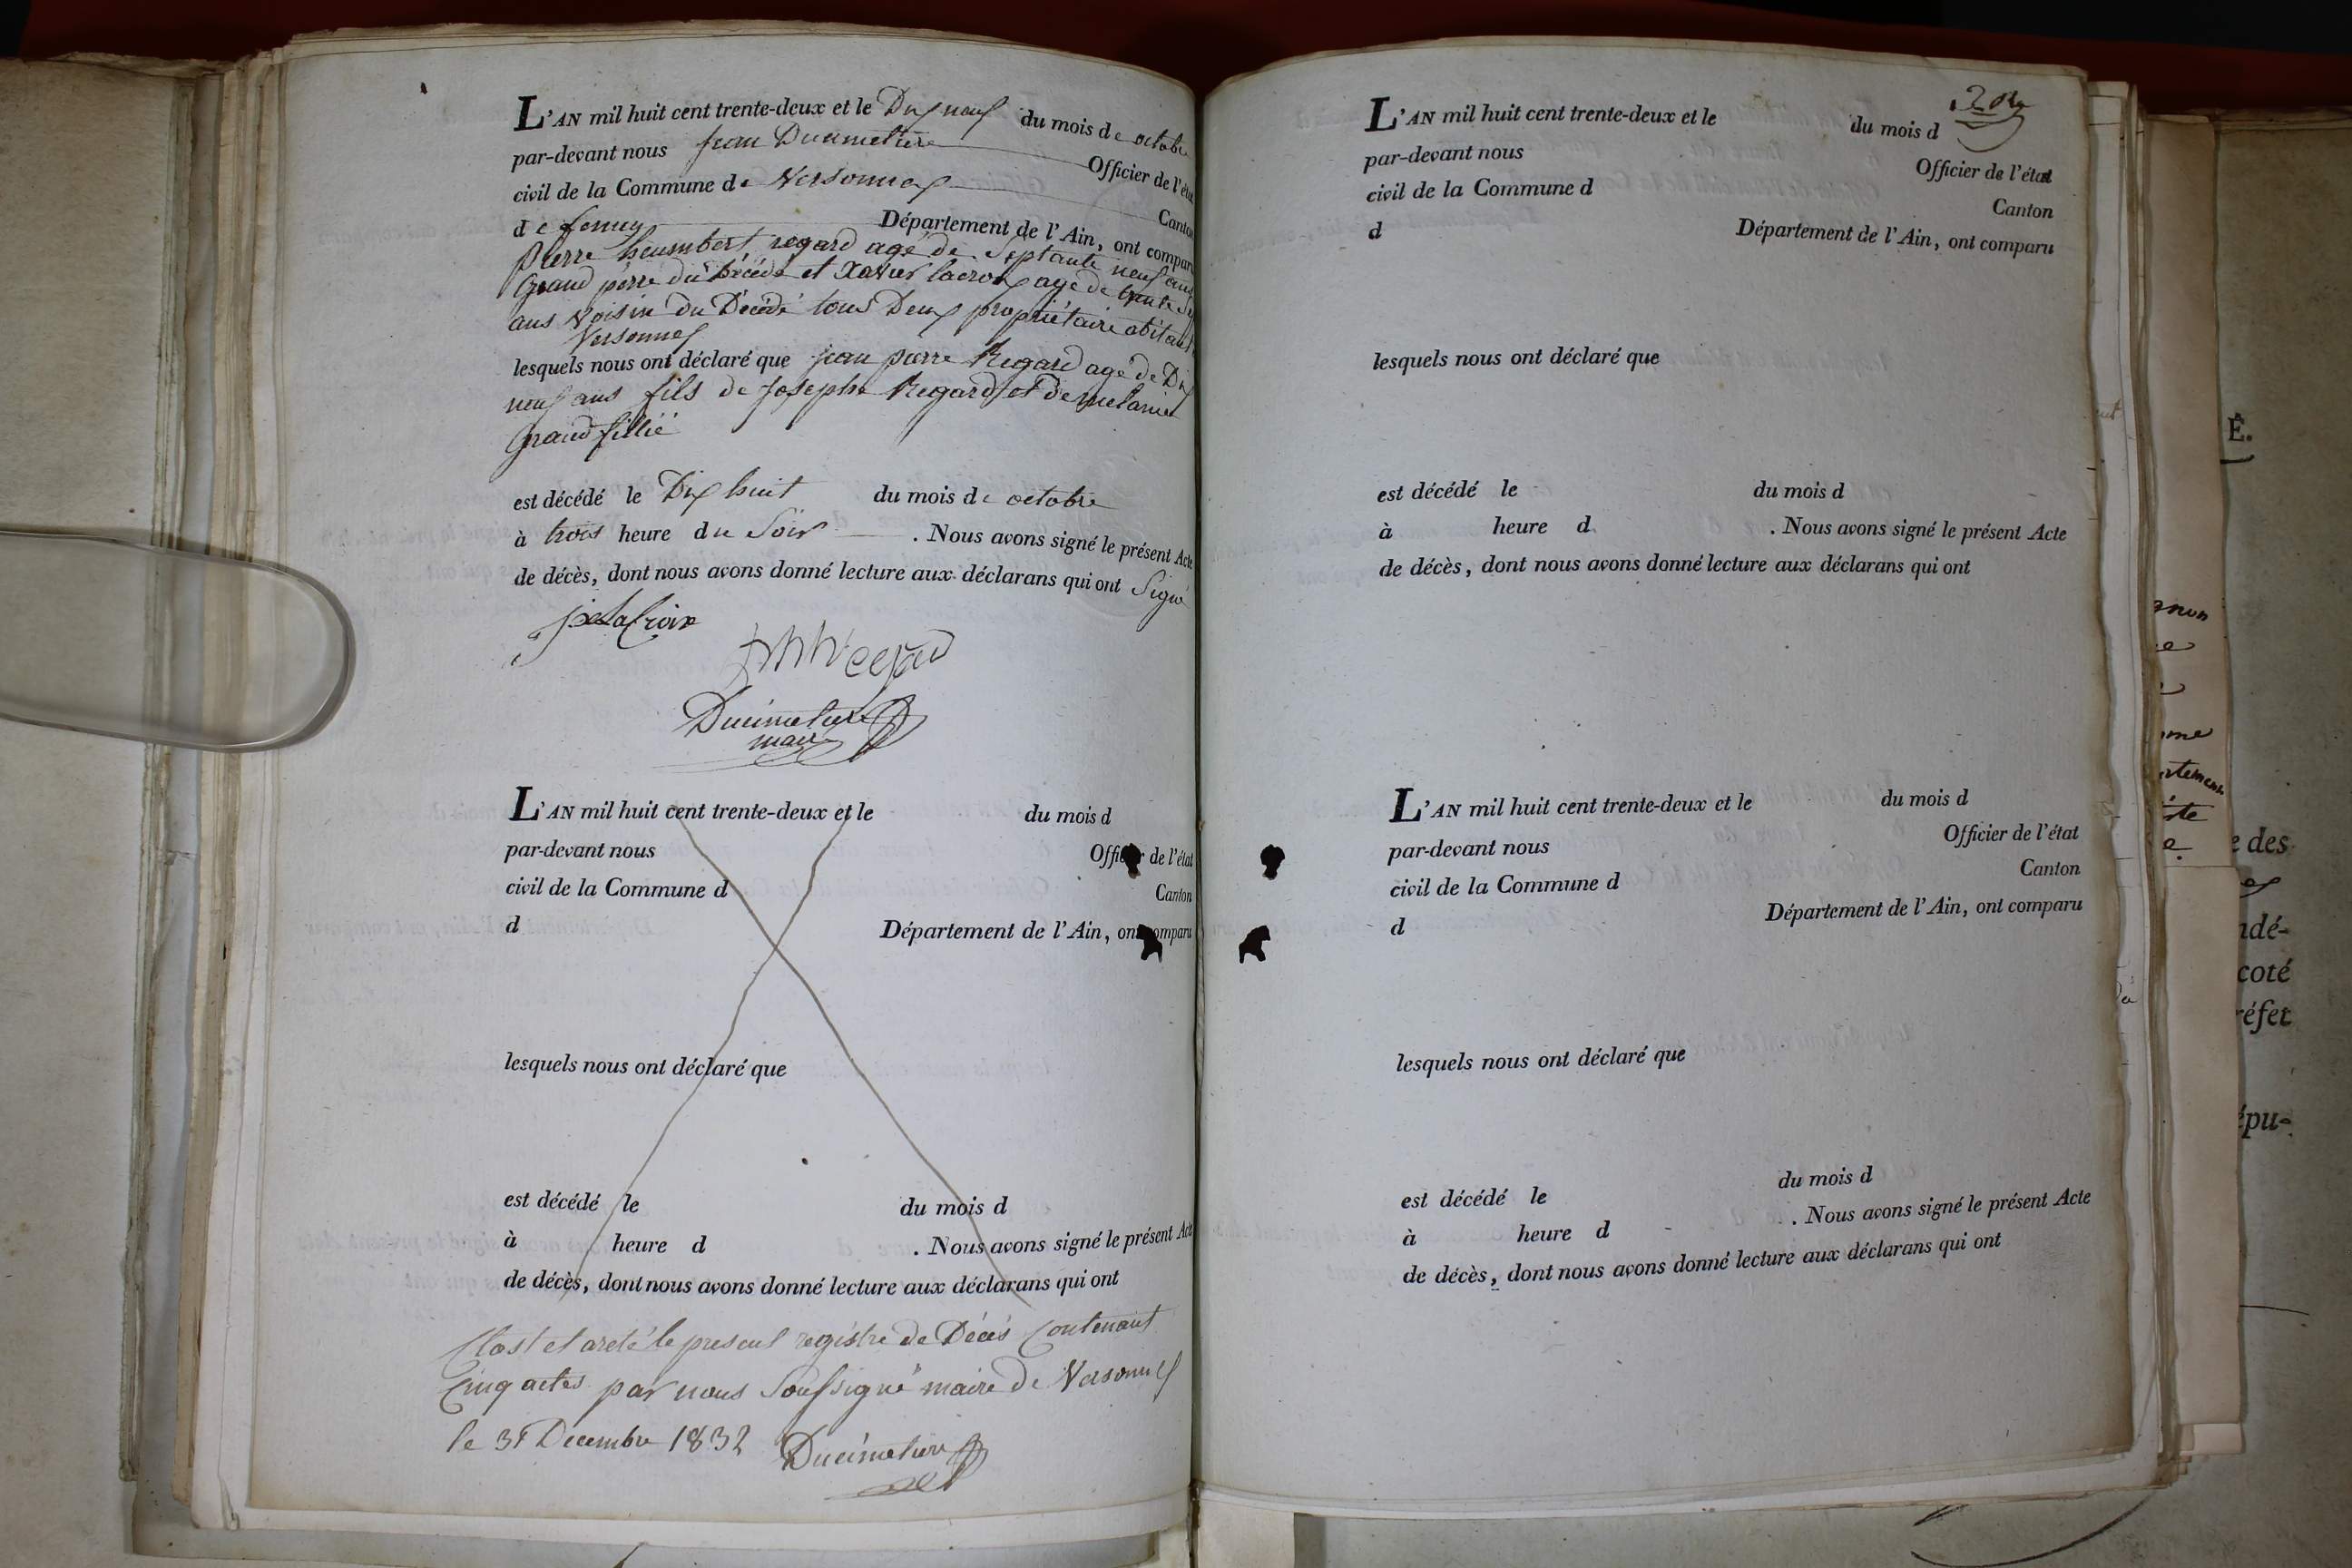 L'AN mil huit cent trente-deux et le Dix neuf du mois de octobre
par-devant nous jean Ducimetiere Officier de l'état
civil de la Commune de Versonnex Canton
de ferney Département de l'Ain, ont comparu
pierre heumbert regard agé de Septante neuf ans
Grand père du Décédé et Xavier lacroix agé de trente
ans Voisin du Décédé tous Deux propriétaire abitant
Versonnex
lesquels nous ont déclaré que jean pierre Regard agé de Dix
neuf ans fils de Josephe Regard et De melanie
Grandfillié
est décédé le Dix huit du mois de octobre
à trois heure du Soir . Nous avons signé le présent Acte
de décès, dont nous avons donné lecture aux déclarans qui ont Signé
LaCroix
Regard
Ducimetiere
maire
L'AN mil huit cent trente-deux et le du mois d
par-devant nous Officier de l'état
civil de la Commune d Canton
d Département de l'Ain, ont comparu
lesquels nous ont déclaré que
est décédé le du mois d
à heure d . Nous avons signé le présent Acte
de décès, dont nous avons donné lecture aux déclarans qui ont
Clost et areté le present registre de Décés Contenant
Cinq actes par nous Soussigné maire de Versonnex
le 31 Decembre 1832 Ducimetiere
L'AN mil huit cent trente-deux et le du mois d
par-devant nous Officier de l'état
civil de la Commune d Canton
d Département de l'Ain, ont comparu
lesquels nous ont déclaré que
est décédé le du mois d
à heure d . Nous avons signé le présent Acte
de décès, dont nous avons donné lecture aux déclarans qui ont
L'AN mil huit cent trente-deux et le du mois d
par-devant nous Officier de l'état
civil de la Commune d Canton
d Département de l'Ain, ont comparu
lesquels nous ont déclaré que
est décédé le du mois d
à heure d . Nous avons signé le présent Acte
de décès, dont nous avons donné lecture aux déclarans qui ont
É.
e des
ndé-
coté
réfet
épu-